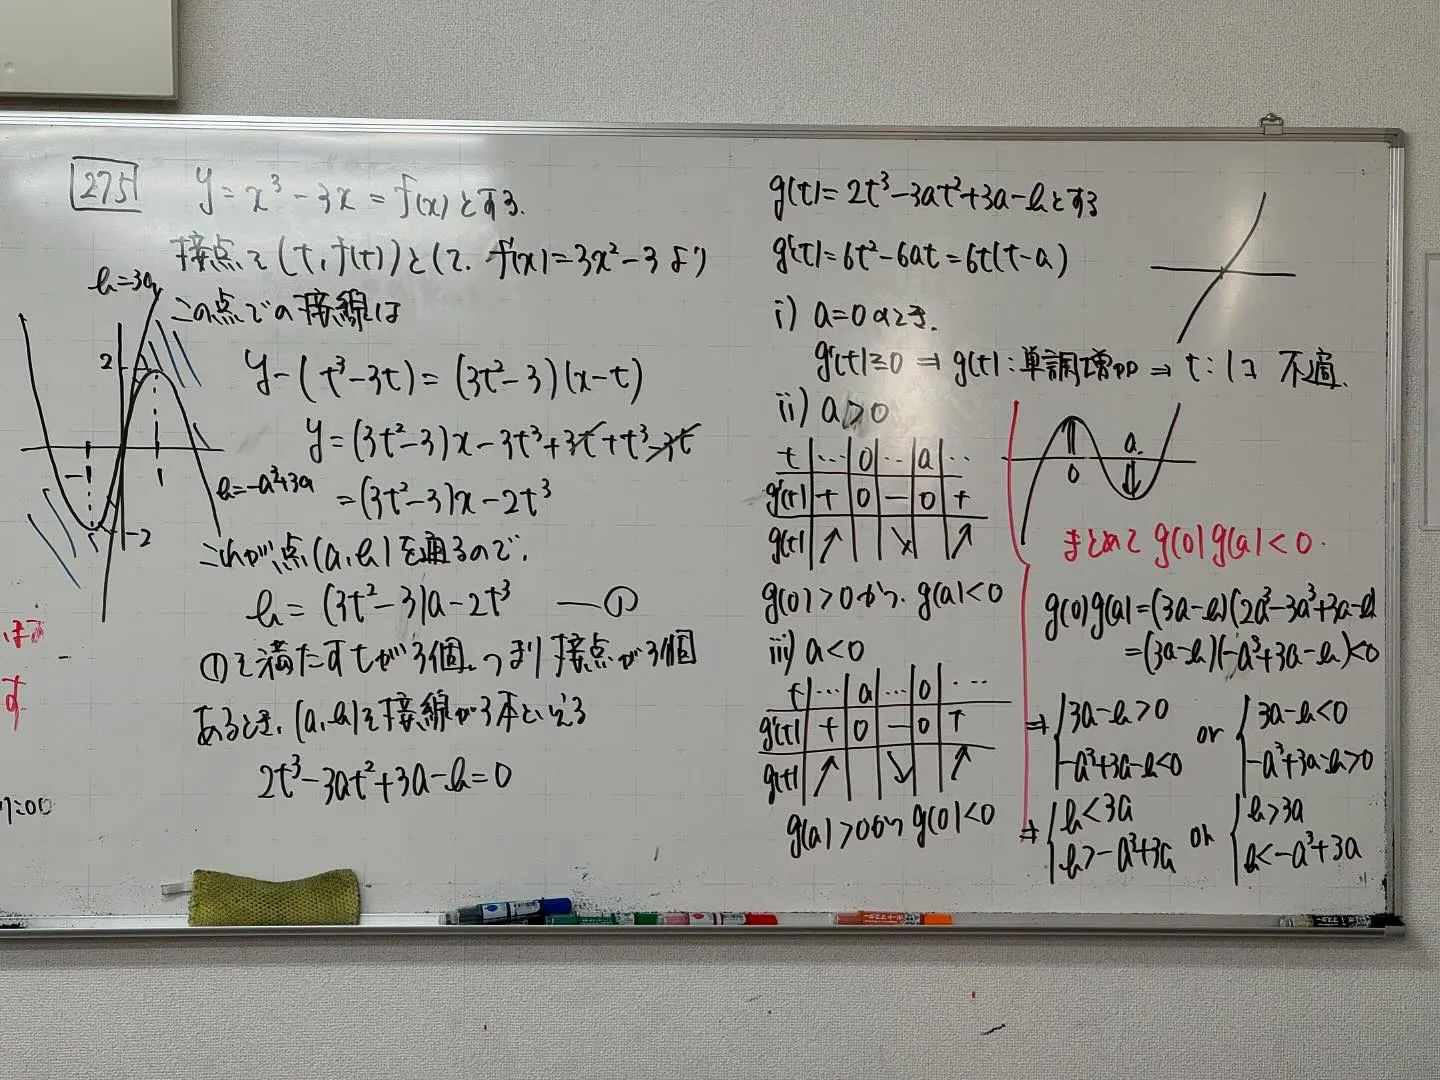 275 y=x³-3x=f(x)とする.
接点を(t, f(t))として. f'(x)=3x²-3より
この点での接線は
y-(t³-3t)=(3t²-3)(x-t)
y=(3t²-3)x-3t³+3t+t³-3t
=(3t²-3)x-2t³
これが点(a, b)を通るので.
b=(3t²-3)a-2t³ —①
①を満たすtが3個. つまり接点が3個
あるとき. (a, b)を接線が3本といえる
2t³-3at²+3a-b=0
b=3a
2
-1
1
-2
b=-a³+3a
す
7:00
g(t)=2t³-3at²+3a-bとする
g'(t)=6t²-6at=6t(t-a)
i) a=0のとき.
g'(t)≧0 ⇒ g(t):単調増加 ⇒ t:1コ 不適.
ii) a>0
t … 0 … a …
g'(t) + 0 - 0 +
g(t) ↗ ↘ ↗
g(0)>0かつ. g(a)<0
iii) a<0
t … a … 0 …
g'(t) + 0 - 0 +
g(t) ↗ ↘ ↗
g(a)>0かつ g(0)<0
0
a
まとめて g(0)g(a)<0.
g(0)g(a)=(3a-b)(2a³-3a³+3a-b)
=(3a-b)(-a³+3a-b)<0
⇒ { 3a-b>0 or { 3a-b<0
-a³+3a-b<0 -a³+3a-b>0
⇒ { b<3a or { b>3a
b>-a³+3a b<-a³+3a